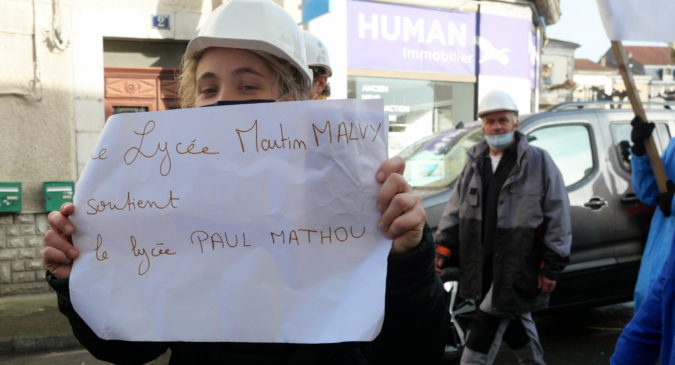 2
HUMAN
immobilier
ANCIEN
e Lycée Martin MALVY
soutient
le lycée PAUL MATHOU